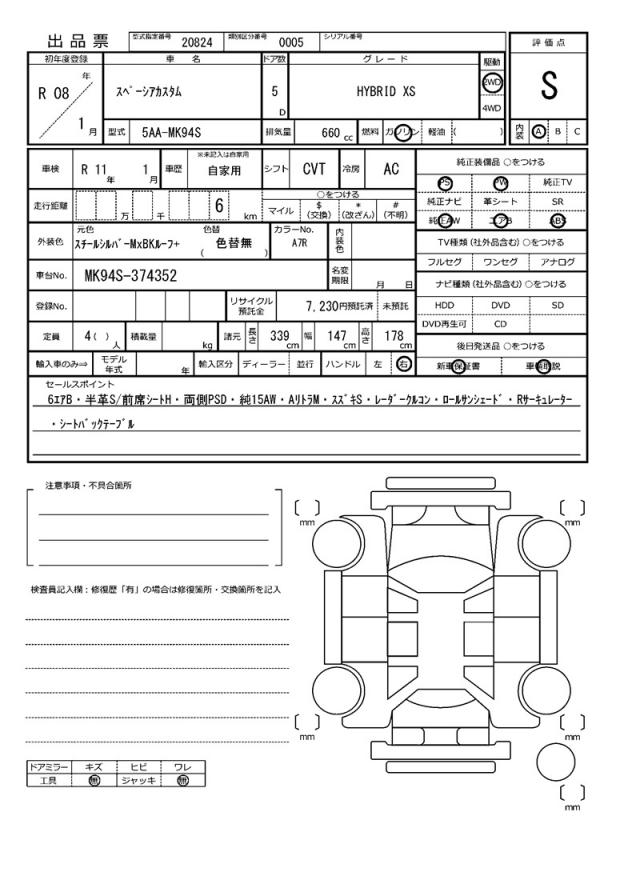 出品票 型式指定番号 20824 類別区分番号 0005 シリアル番号
評価点
S
初年度登録 車名 ドア数 グレード 駆動
R 08 年 1 月 スペーシアカスタム 5 D HYBRID XS 2WD
4WD
型式 5AA-MK94S 排気量 660 cc 燃料 ガソリン 軽油 ( ) 内装 A B C
車検 R 11 年 1 月 車歴 ※未記入は自家用 自家用 シフト CVT 冷房 AC
純正装備品 ○をつける
PS PW 純正TV
純正ナビ 革シート SR
純正AW エアB ABS
走行距離 万 千 6 km ○をつける
マイル $(交換) *(改ざん) #(不明)
TV種類 (社外品含む) ○をつける
フルセグ ワンセグ アナログ
外装色 元色 スチールシルバーMxBKルーフ+ 色替 ( 色替無 ) カラーNo. A7R 内装色
車台No. MK94S-374352 名変期限 月 日
ナビ種類 (社外品含む) ○をつける
HDD DVD SD
DVD再生可 CD
登録No. リサイクル預託金 7,230円預託済 未預託
定員 4 ( ) 人 積載量 kg 諸元 長さ 339 cm 幅 147 cm 高さ 178 cm
後日発送品 ○をつける
新車保証書
輸入車のみ⇒ モデル年式 年 輸入区分 ディーラー 並行 ハンドル 左 右
セールスポイント
6エアB・半革S/前席シートH・両側PSD・純15AW・AリトラM・スズキS・レーダークルコン・ロールサンシェード・Rサーキュレーター
・シートバックテーブル
注意事項・不具合箇所
検査員記入欄：修復歴「有」の場合は修復箇所・交換箇所を記入
mm
mm
mm
mm
mm
ドアミラー キズ ヒビ ワレ
工具 無 ジャッキ 無